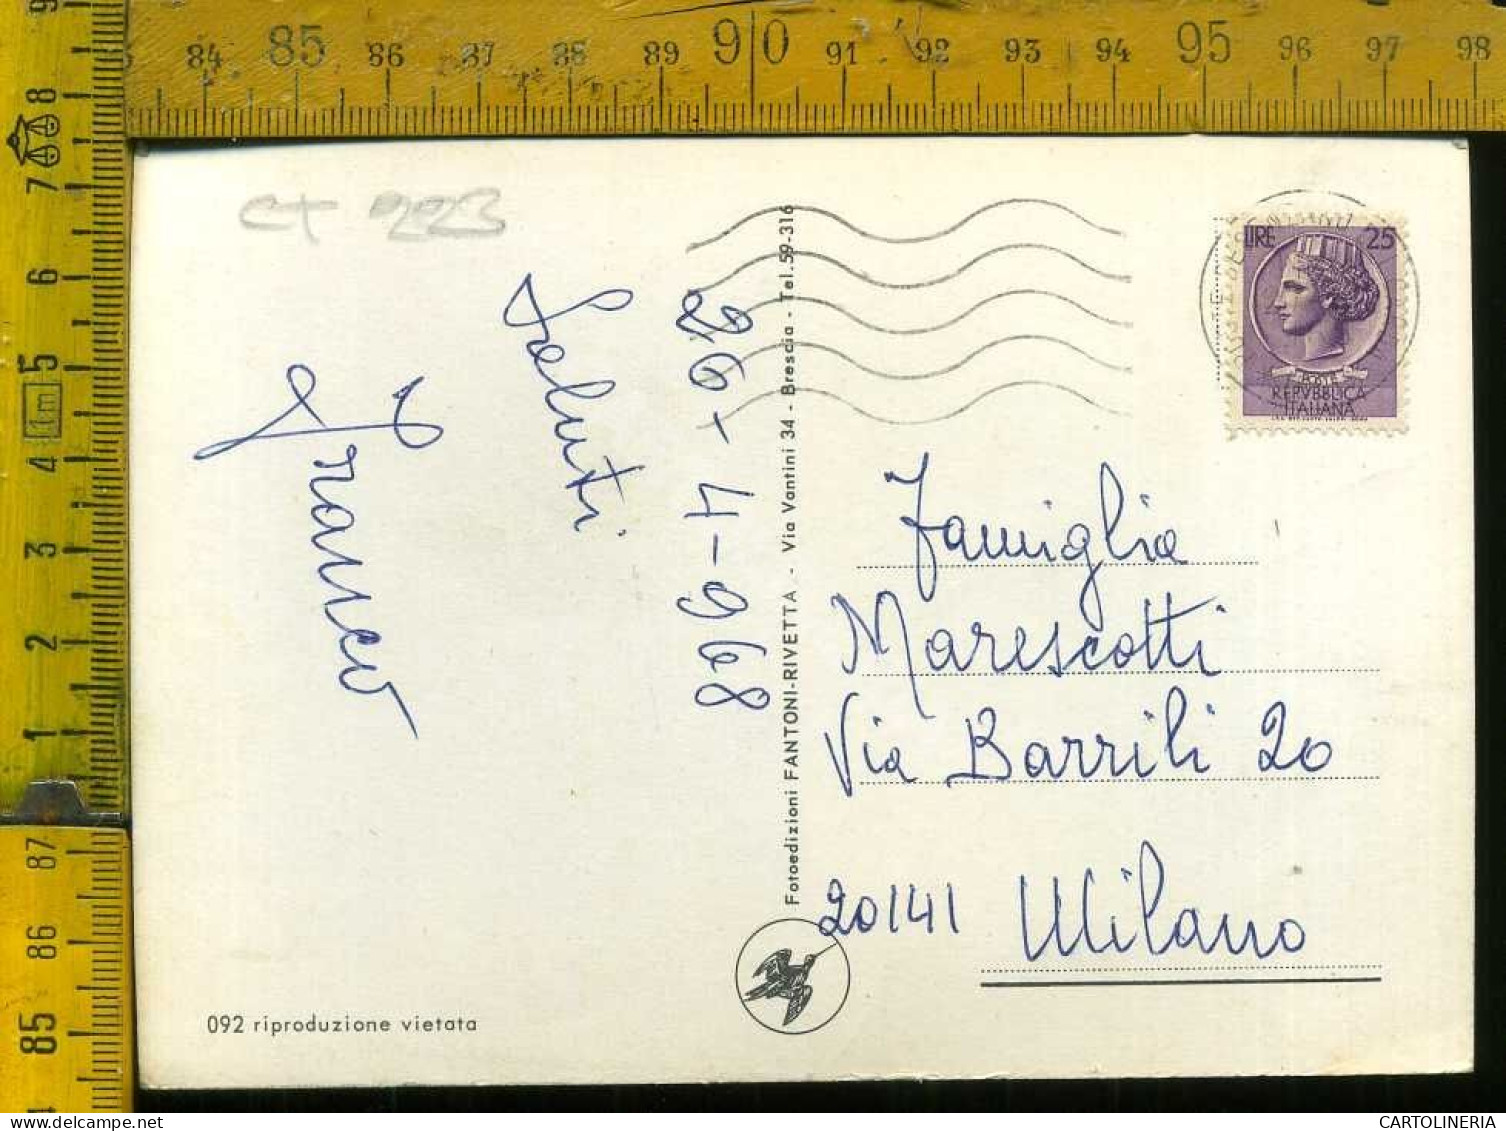 84 85 86 87 88 89 90 91 92 93 94 95 96 97 98
8
7
6
5
1m
4
3
2
1
87
86
85
ct 223
26-4-968
Saluti
Franco
Fotoedizioni FANTONI-RIVETTA - Via Vantini 34 - Brescia - Tel. 59-316
LIRE 25
POSTE
REPVBBLICA
ITALIANA
Famiglia
Marescotti
Via Barrili 20
20141 Milano
092 riproduzione vietata
CARTOLINERIA